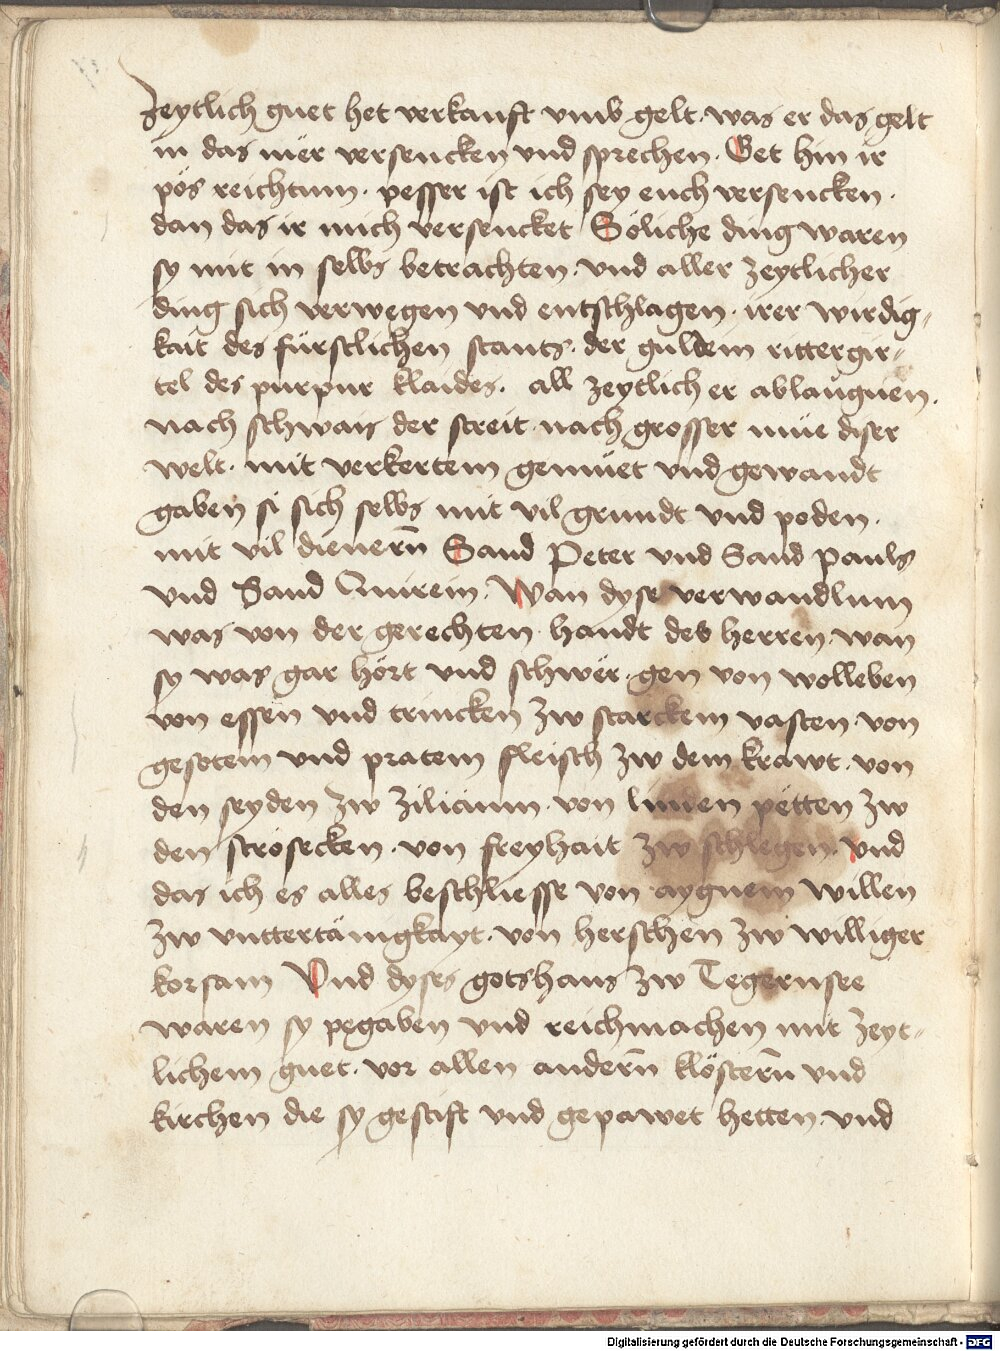 zeytlich guet het verkauft umb gelt · was er das gelt
in das mër versencken und sprechen · Get hin ir
pös reichtum · pesser ist ich sey euch versencken ·
dan das ir mich versencket Söliche ding waren
sy mit in selbs betrachten · und aller zeytlicher
ding sich verwegen und entschlagen · irer wirdig-
kait des fürstlichen stants · der guldein rittergir-
tel des purpur klaides · all zeytlich er ablaugnen ·
nach schwais der streit · nach grosser müe diser
welt · mit verkertem gemüet und gewandt
gaben si sich selbs mit vil grundt und poden ·
mit vil dienern̄ Sand Peter und Sand pauls
und Sand Quirein · Wan dyse verwandlum
was von der gerechten handt des herren · wan
sy was gar hört und schwër · gen von wolleben
von essen und trincken zw starckem vasten · von
gesotem und pratem fleisch zw dem krawt · von
den seyden zw zilicium · von linden petten zw
den strosecken · von freyhait zw schlegen · Und
das ich es alles beschliesse von aygnem willen
zw unttertänigkayt · von herschen zw williger
korsam Und dyses gotshaus zw Tegernsee
waren sy pegaben und reichmachen mit zeyt-
lichem guet · vor allen andern̄ klöstern̄ und
kirchen die sy gestift und gepawet hetten · und
Digitalisierung gefördert durch die Deutsche Forschungsgemeinschaft - DFG